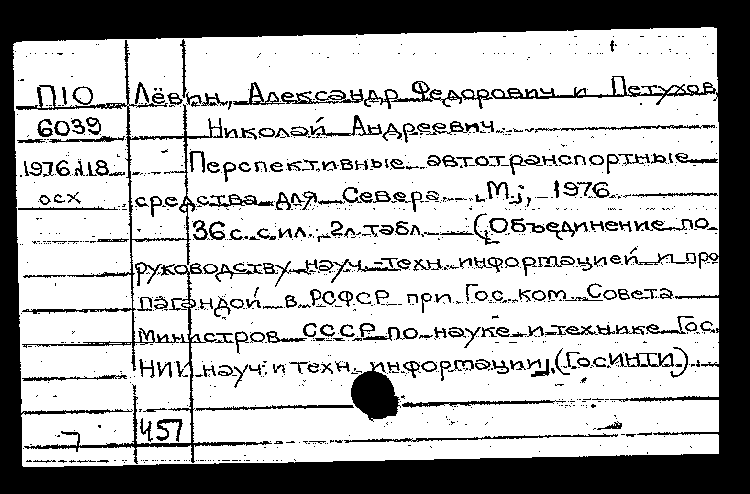 П10 Лёвин, Александр Федорович и Петухов,
6039 Николай Андреевич
1976.118 Перспективные автотранспортные
осх средства для Севера. М., 1976.
36с. с ил.; 2л. табл. (Объединение по
руководству науч.-техн. информацией и про
пагандой в РСФСР при Гос. ком. Совета
министров СССР по науке и технике. Гос.
НИИ науч. и техн. информации (ГосИНТИ).
457